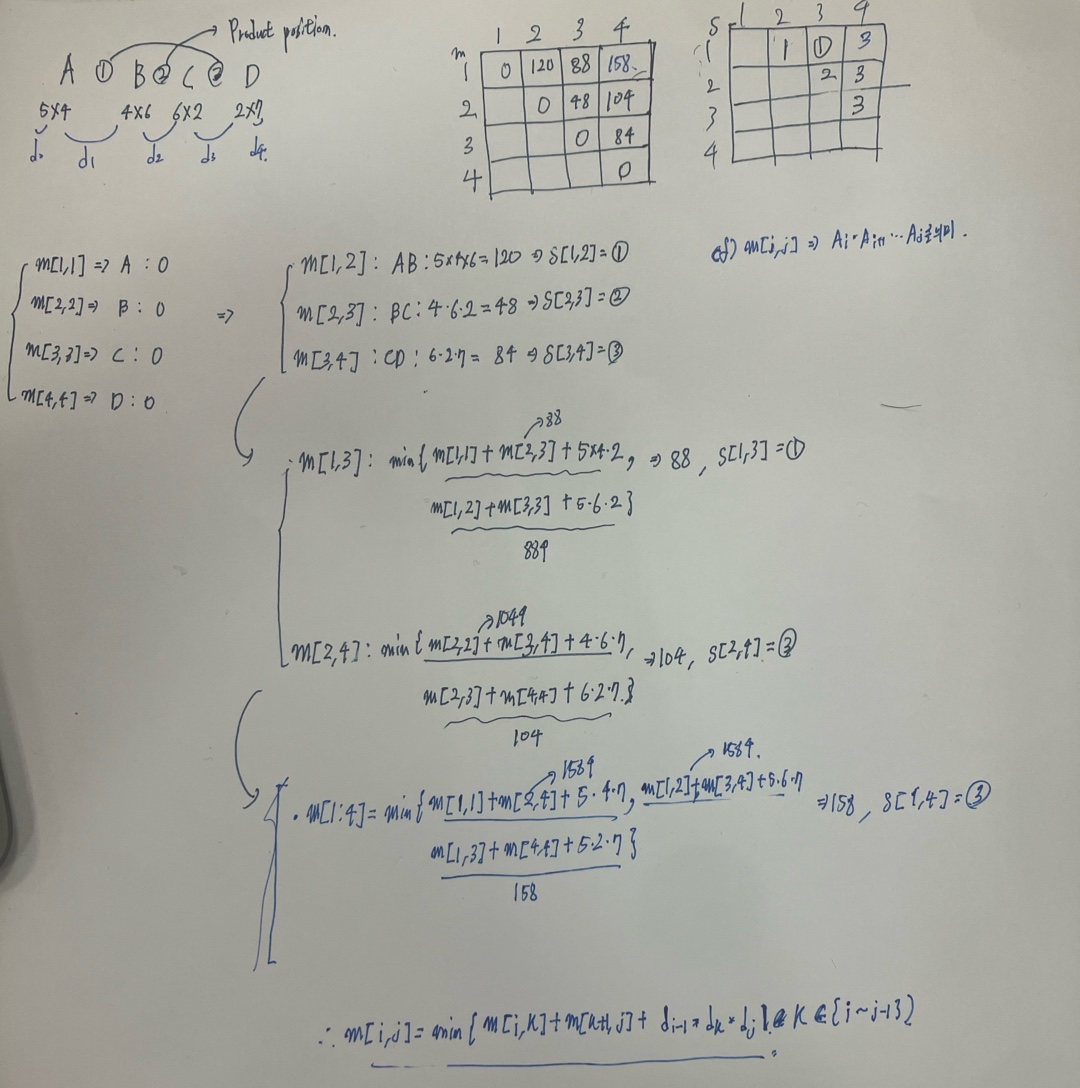 Product position.
A ① B ② C ③ D
5×4 4×6 6×2 2×7
d₀ d1 d2 d3 d4.
m 1 2 3 4
1 0 120 88 158
2 0 48 104
3 0 84
4 0
S 1 2 3 4
1 1 ① 3
2 2 3
3 3
4
cf) m[i,j] => Ai·Ai+1 ··· Aj를 의미.
m[1,1] => A : 0
m[2,2] => B : 0
m[3,3] => C : 0
m[4,4] => D : 0
=>
m[1,2] : AB : 5×4×6 = 120 => S[1,2] = ①
m[2,3] : BC : 4·6·2 = 48 => S[2,3] = ②
m[3,4] : CD : 6·2·7 = 84 => S[3,4] = ③
88
m[1,3] : min{ m[1,1] + m[2,3] + 5×4·2, => 88, S[1,3] = ①
m[1,2] + m[3,3] + 5·6·2}
m[2,4] : min{ m[2,2] + m[3,4] + 4·6·7, => 104, S[2,4] = ③
m[2,3] + m[4,4] + 6·2·7.}
104
m[1:4] = min{ m[1,1] + m[2,4] + 5·4·7, m[1,2] + m[3,4] + 5·6·7 => 158, S[1,4] = ③
m[1,3] + m[4,4] + 5·2·7}
158
∴ m[i,j] = min{ m[i,k] + m[k+1,j] + di-1 * dk * dj } k ∈ {i ~ j-1}